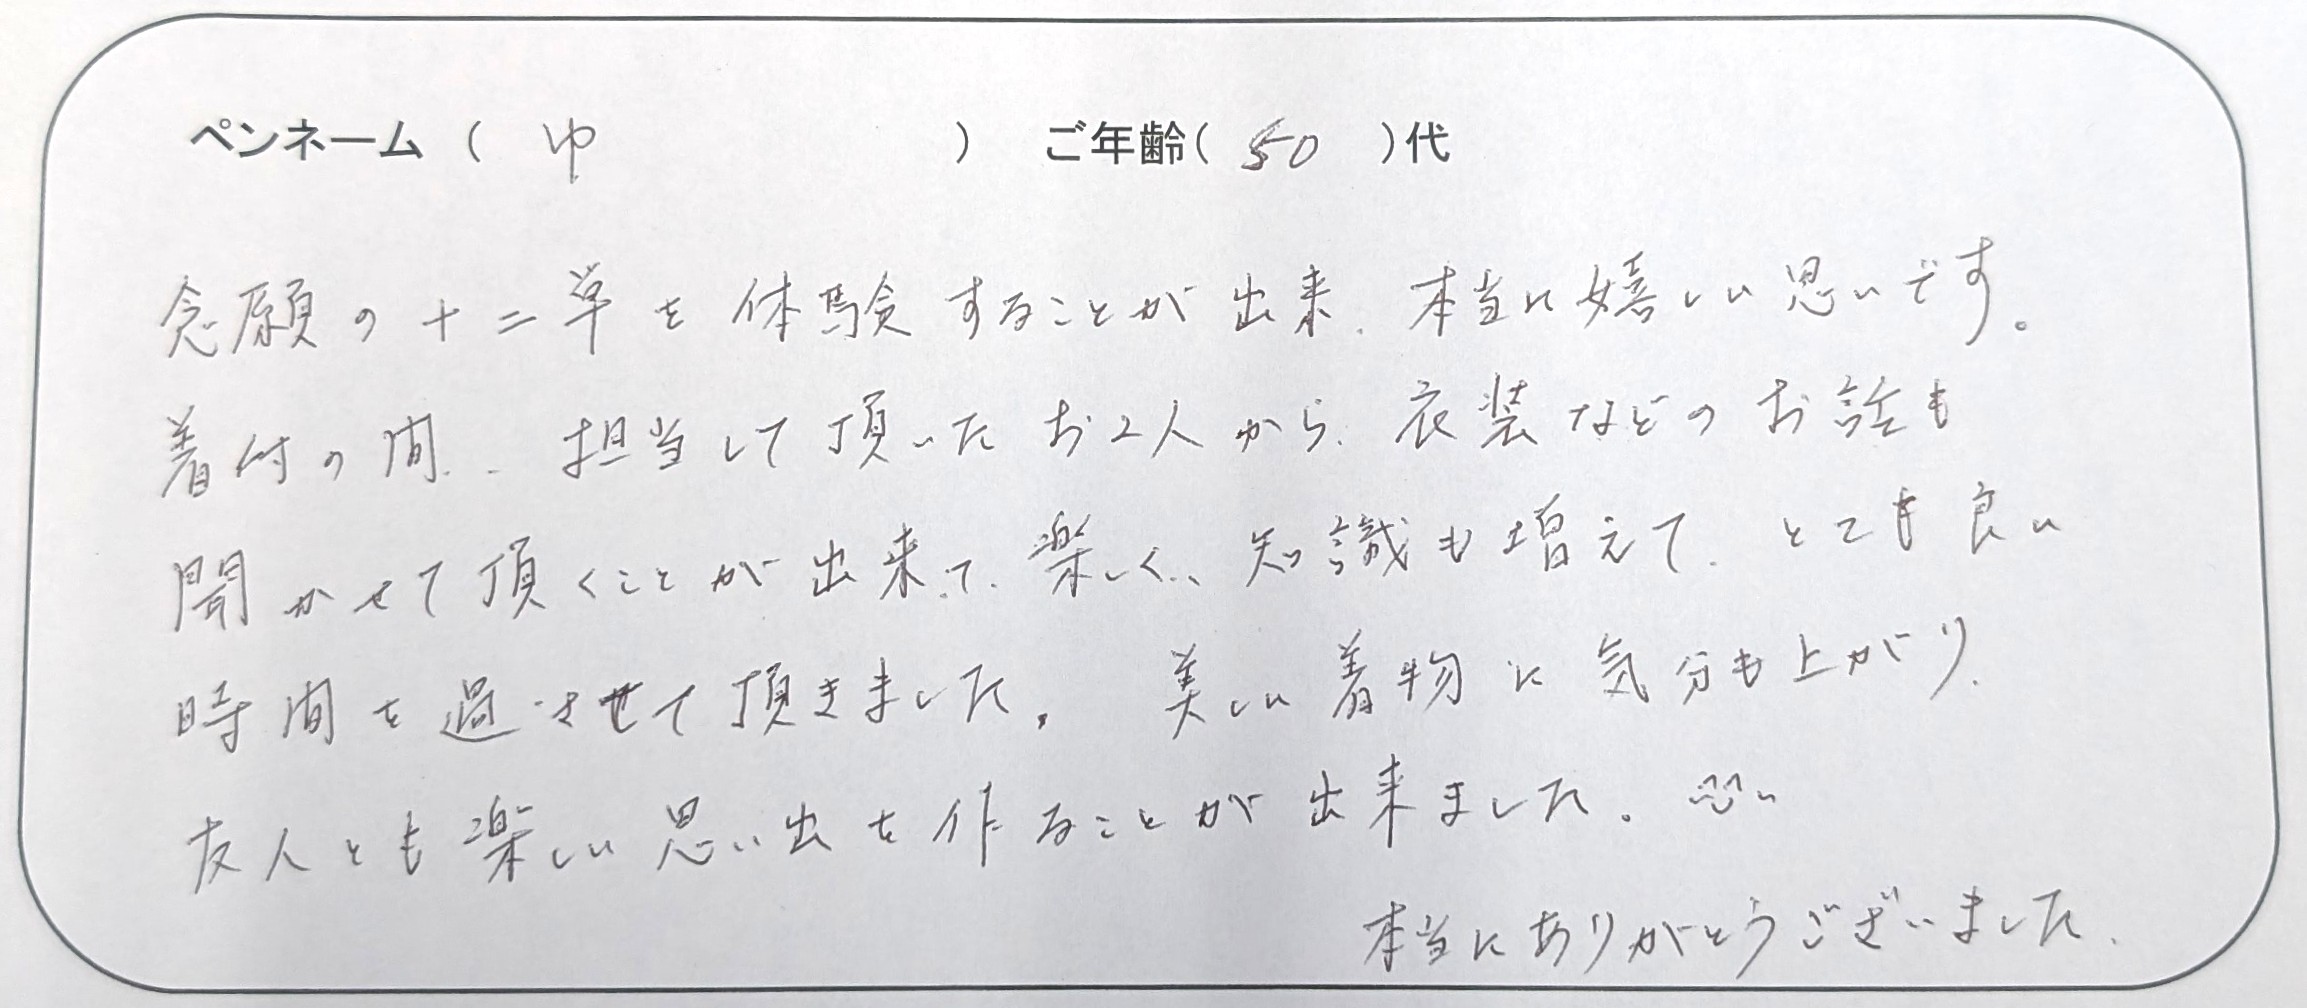 ペンネーム ( ゆ ) ご年齢( 50 )代
念願の十二単を体験することが出来、本当に嬉しい思いです。
着付の間、担当して頂いたお2人から、衣装などのお話も
聞かせて頂くことが出来て、楽しく、知識も増えて、とても良い
時間を過ごさせて頂きました。美しい着物に気分も上がり、
友人とも楽しい思い出を作ることが出来ました。^^
本当にありがとうございました。